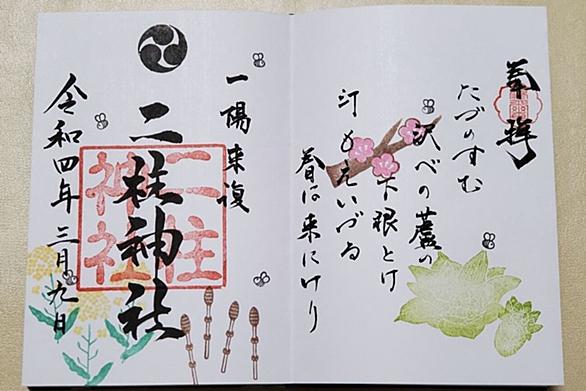 奉拝
たづのすむ
沢べの蘆の
下根とけ
汀もえいづる
春は来にけり
一陽来復
二柱神社
二柱
神社
令和四年三月九日